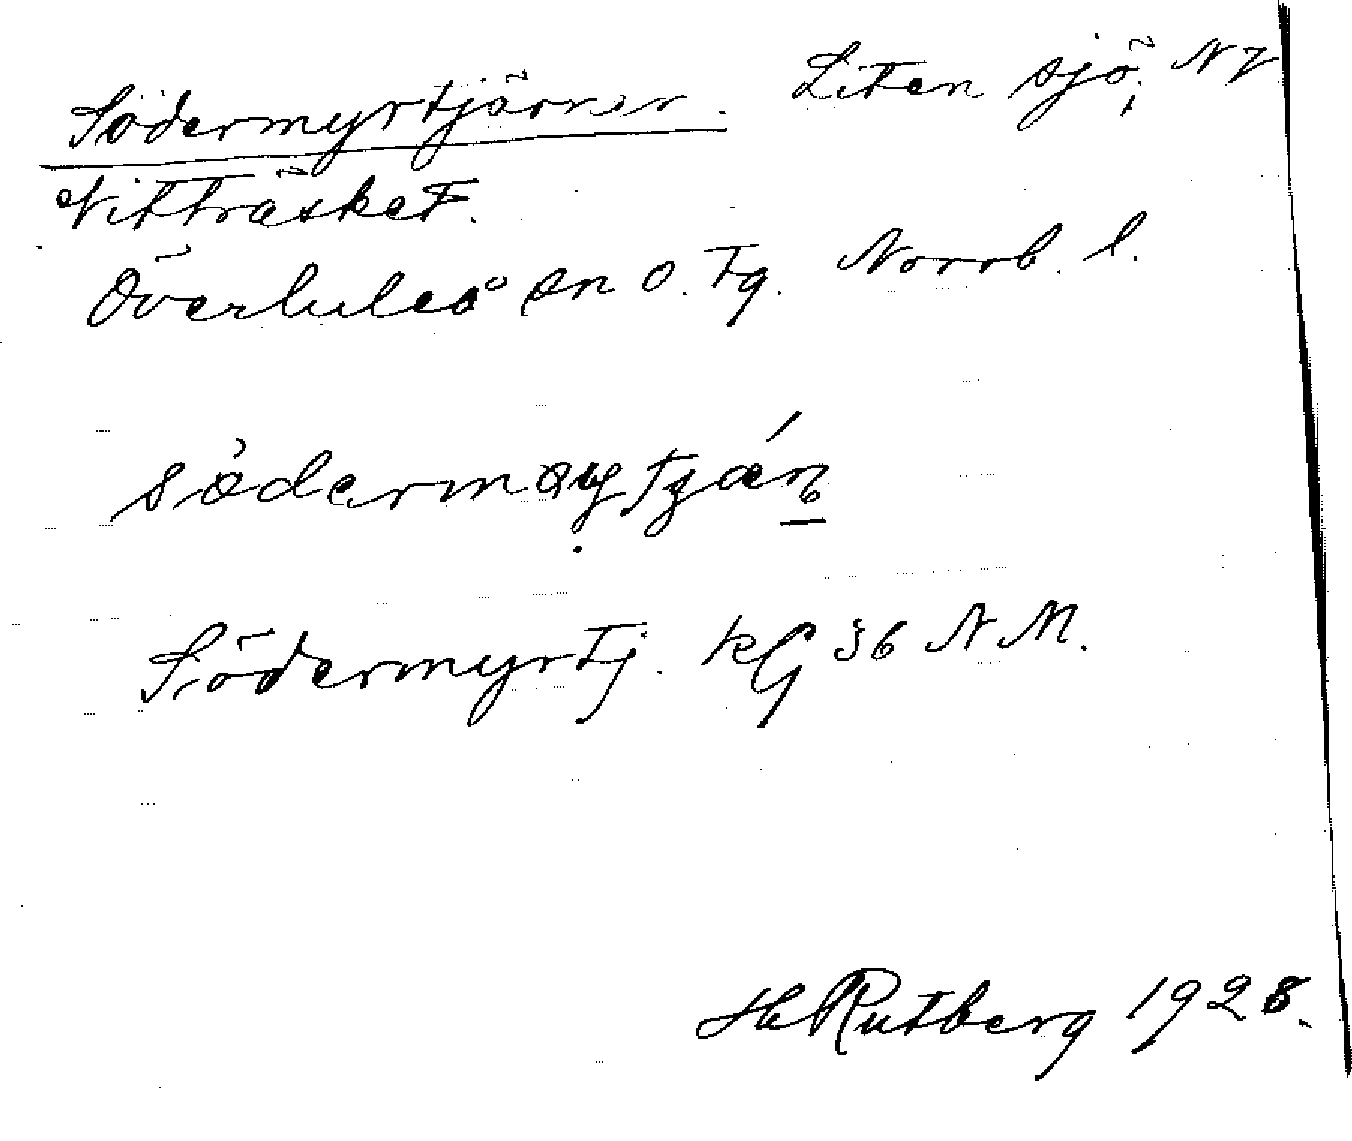 Södermyrtjärnen. Liten sjö; NV
Vitträsket.
Överluleå sn O. Tg. Norrb. l.
Södermyrtj. kG §6 N M.
H Rutberg 1928.